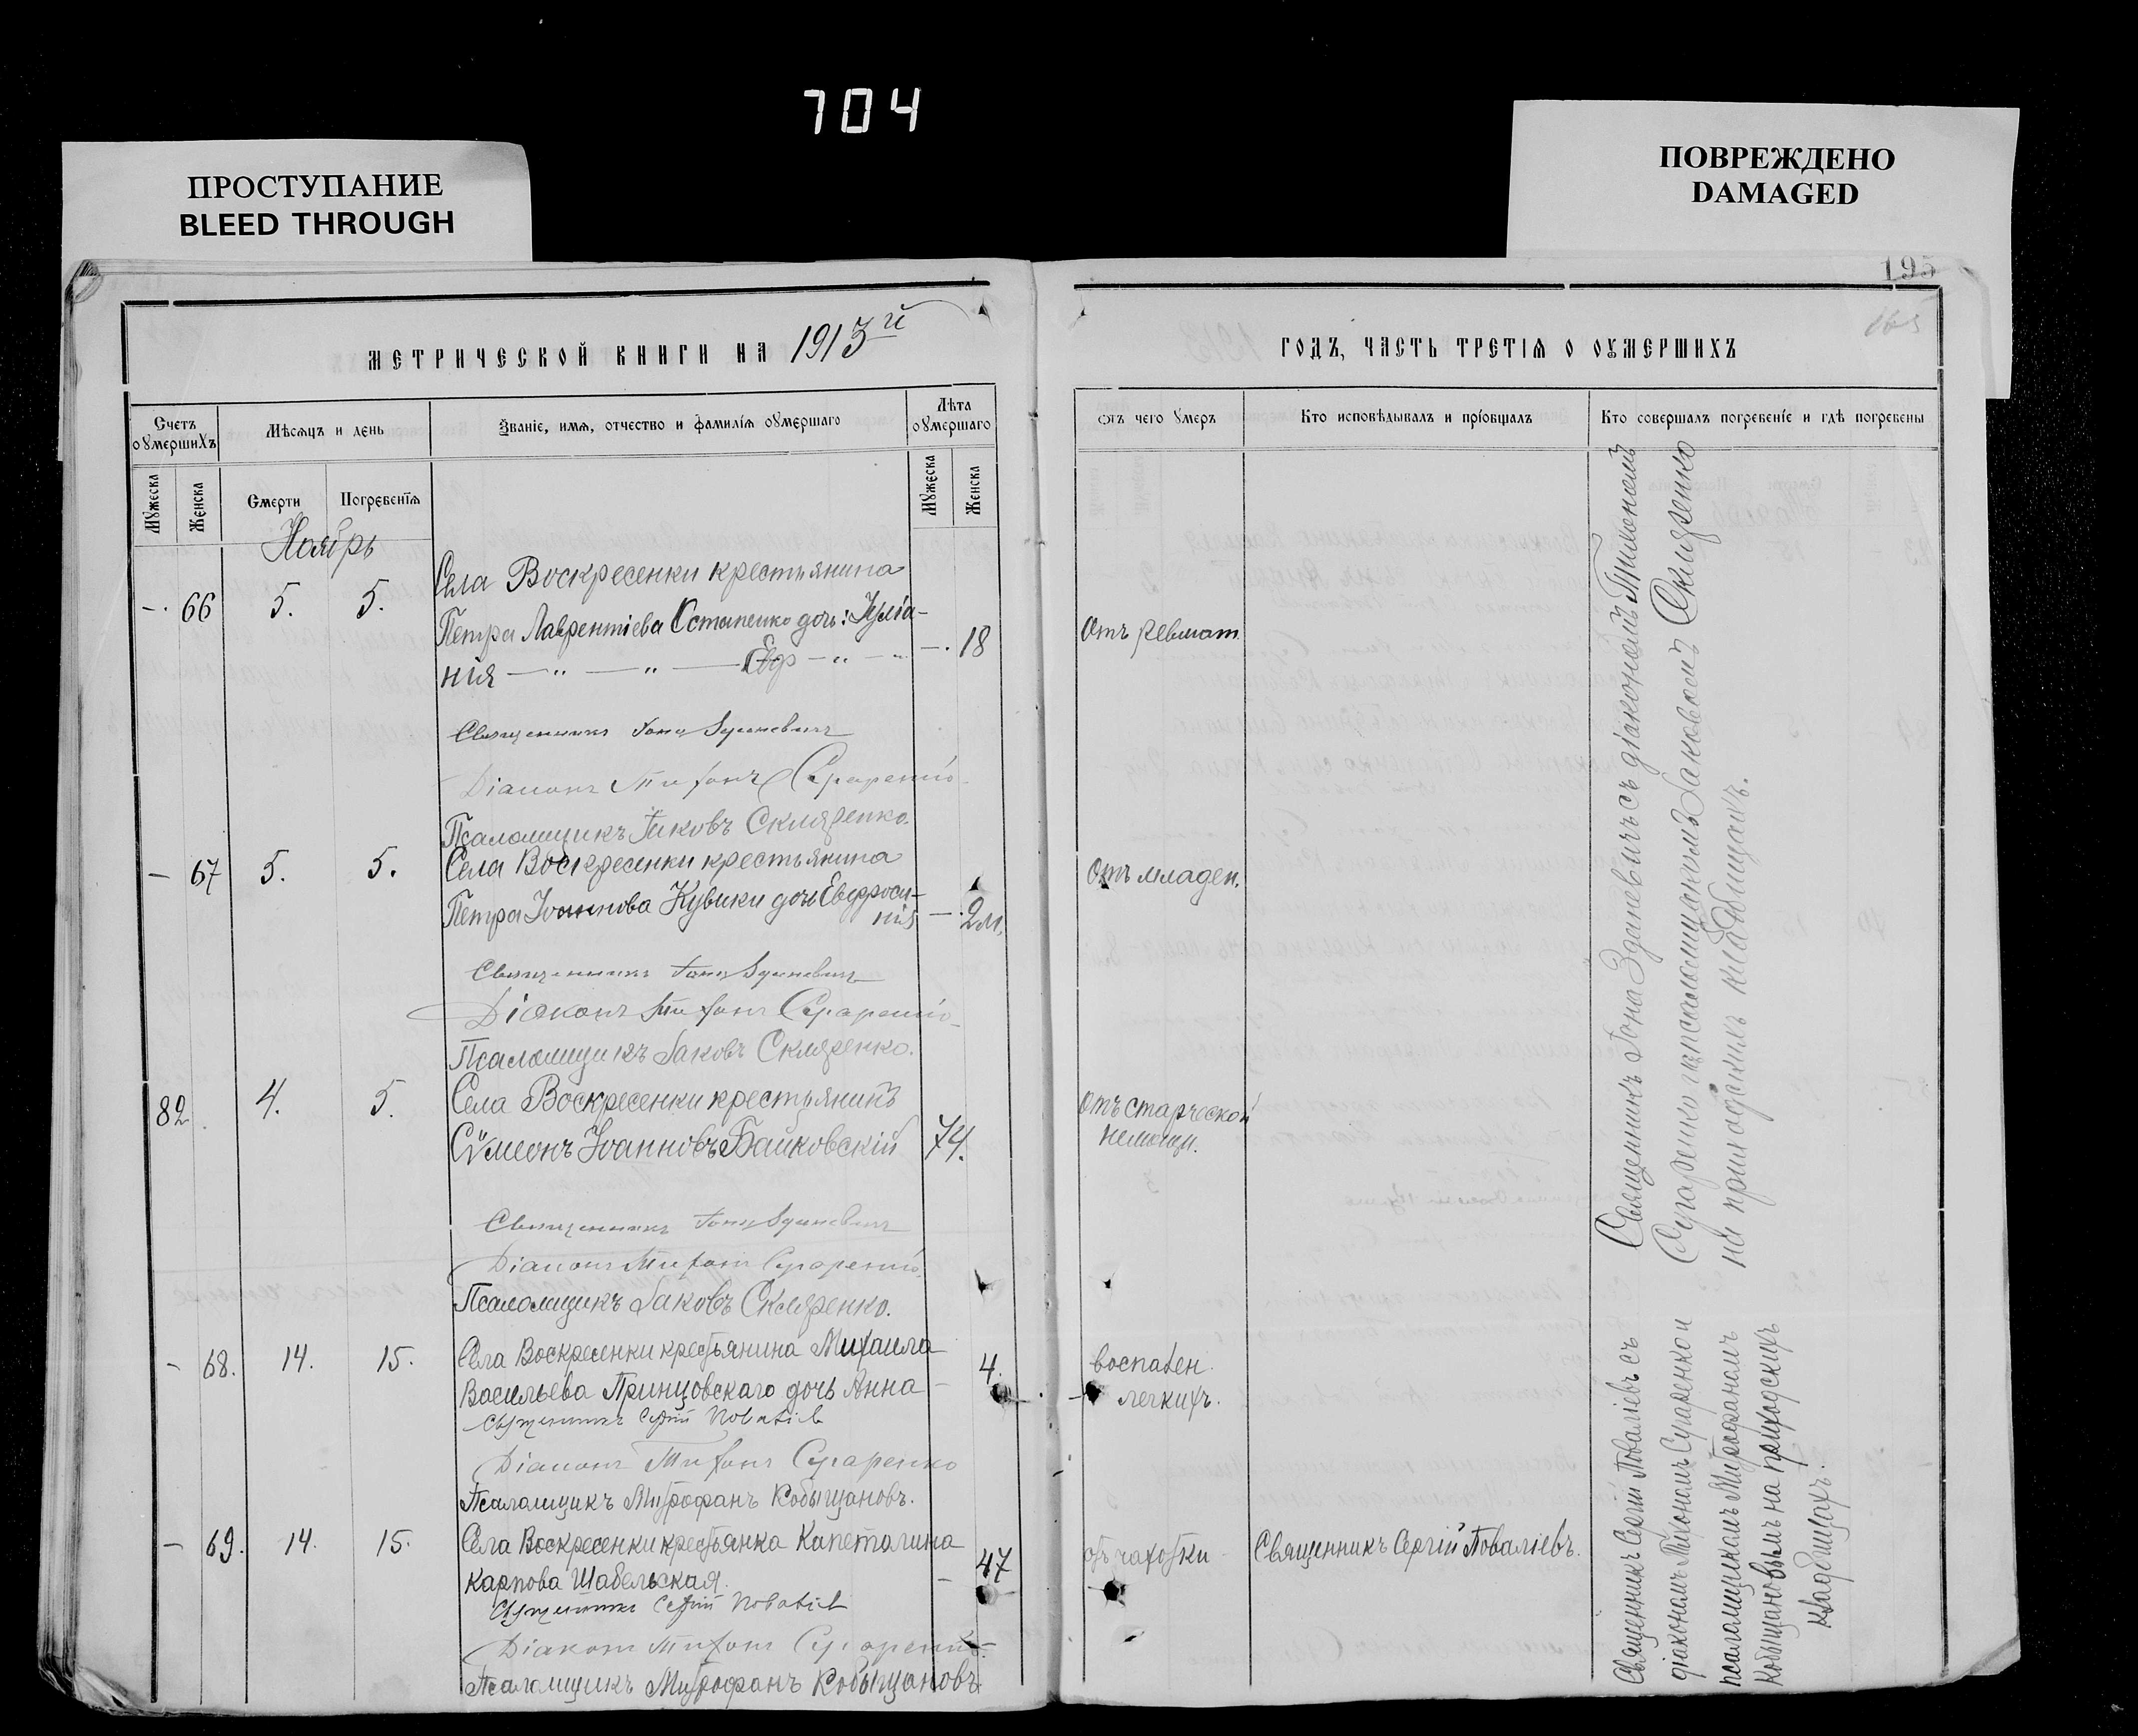 704
ПРОСТУПАНИЕ
BLEED THROUGH
ПОВРЕЖДЕНО
DAMAGED
195
МЕТРИЧЕСКОЙ КНИГИ НА 1913й
ГОДЪ, ЧАСТЬ ТРЕТІЯ О ОУМЕРШИХЪ
Счетъ оумершихъ
Мѣсяцъ и день
Званіе, имя, отчество и фамилія оумершаго
Лѣта оумершаго
Отъ чего умеръ
Кто исповѣдывалъ и пріобщалъ
Кто совершалъ погребеніе и гдѣ погребены
Мужеска
Женска
Смерти
Погребенія
Мужеска
Женска
Ноябрь
Села Воскресенки крестьянина
-. 66 5. 5. Петра Лаврентіева Остапенко дочь: Іуліа-
нія — „ — „ — — „ — -. 18 Отъ ревмат.
Священникъ Іона Зданевичъ
Діаконъ Тихонъ Сугаренко
Псаломщикъ Іаковъ Скляренко.
— 67 5. 5. Села Воскресенки крестьянина
Петра Іоаннова Кувики дочь Евфроси-
нія — . 2 м. Отъ младен.
Священникъ Іона Зданевичъ
Діаконъ Тихонъ Сугаренко
Псаломщикъ Іаковъ Скляренко.
82 4. 5. Села Воскресенки крестьянинъ
Сѵмеонъ Іоанновъ Байковскій 74. Отъ старческой
немощи.
Священникъ Іона Зданевичъ
Діаконъ Тихонъ Сугаренко
Псаломщикъ Іаковъ Скляренко.
- 68. 14. 15. Села Воскресенки крестьянина Михаила
Васильева Принцовскаго дочь Анна - 4. воспален.
легкихъ.
Священникъ Сергій Поваліевъ
Діаконъ Тихонъ Сугаренко
Псаломщикъ Митрофанъ Кобыщановъ.
— 69. 14. 15. Села Воскресенки крестьянка Капеталина
Карпова Шабельская. - 47 отъ чахотки Священникъ Сергій Поваліевъ.
Священникъ Сергій Поваліевъ
Діаконъ Тихонъ Сугаренко
Псаломщикъ Митрофанъ Кобыщановъ
Священникъ Іона Зданевичъ съ діакономъ Тихономъ
Сугаренко и псаломщикомъ Іаковомъ Скляренко
на приходскихъ кладбищахъ.
Священникъ Сергій Поваліевъ съ
діакономъ Тихономъ Сугаренко и
псаломщикомъ Митрофаномъ
Кобыщановымъ на приходскихъ
кладбищахъ.